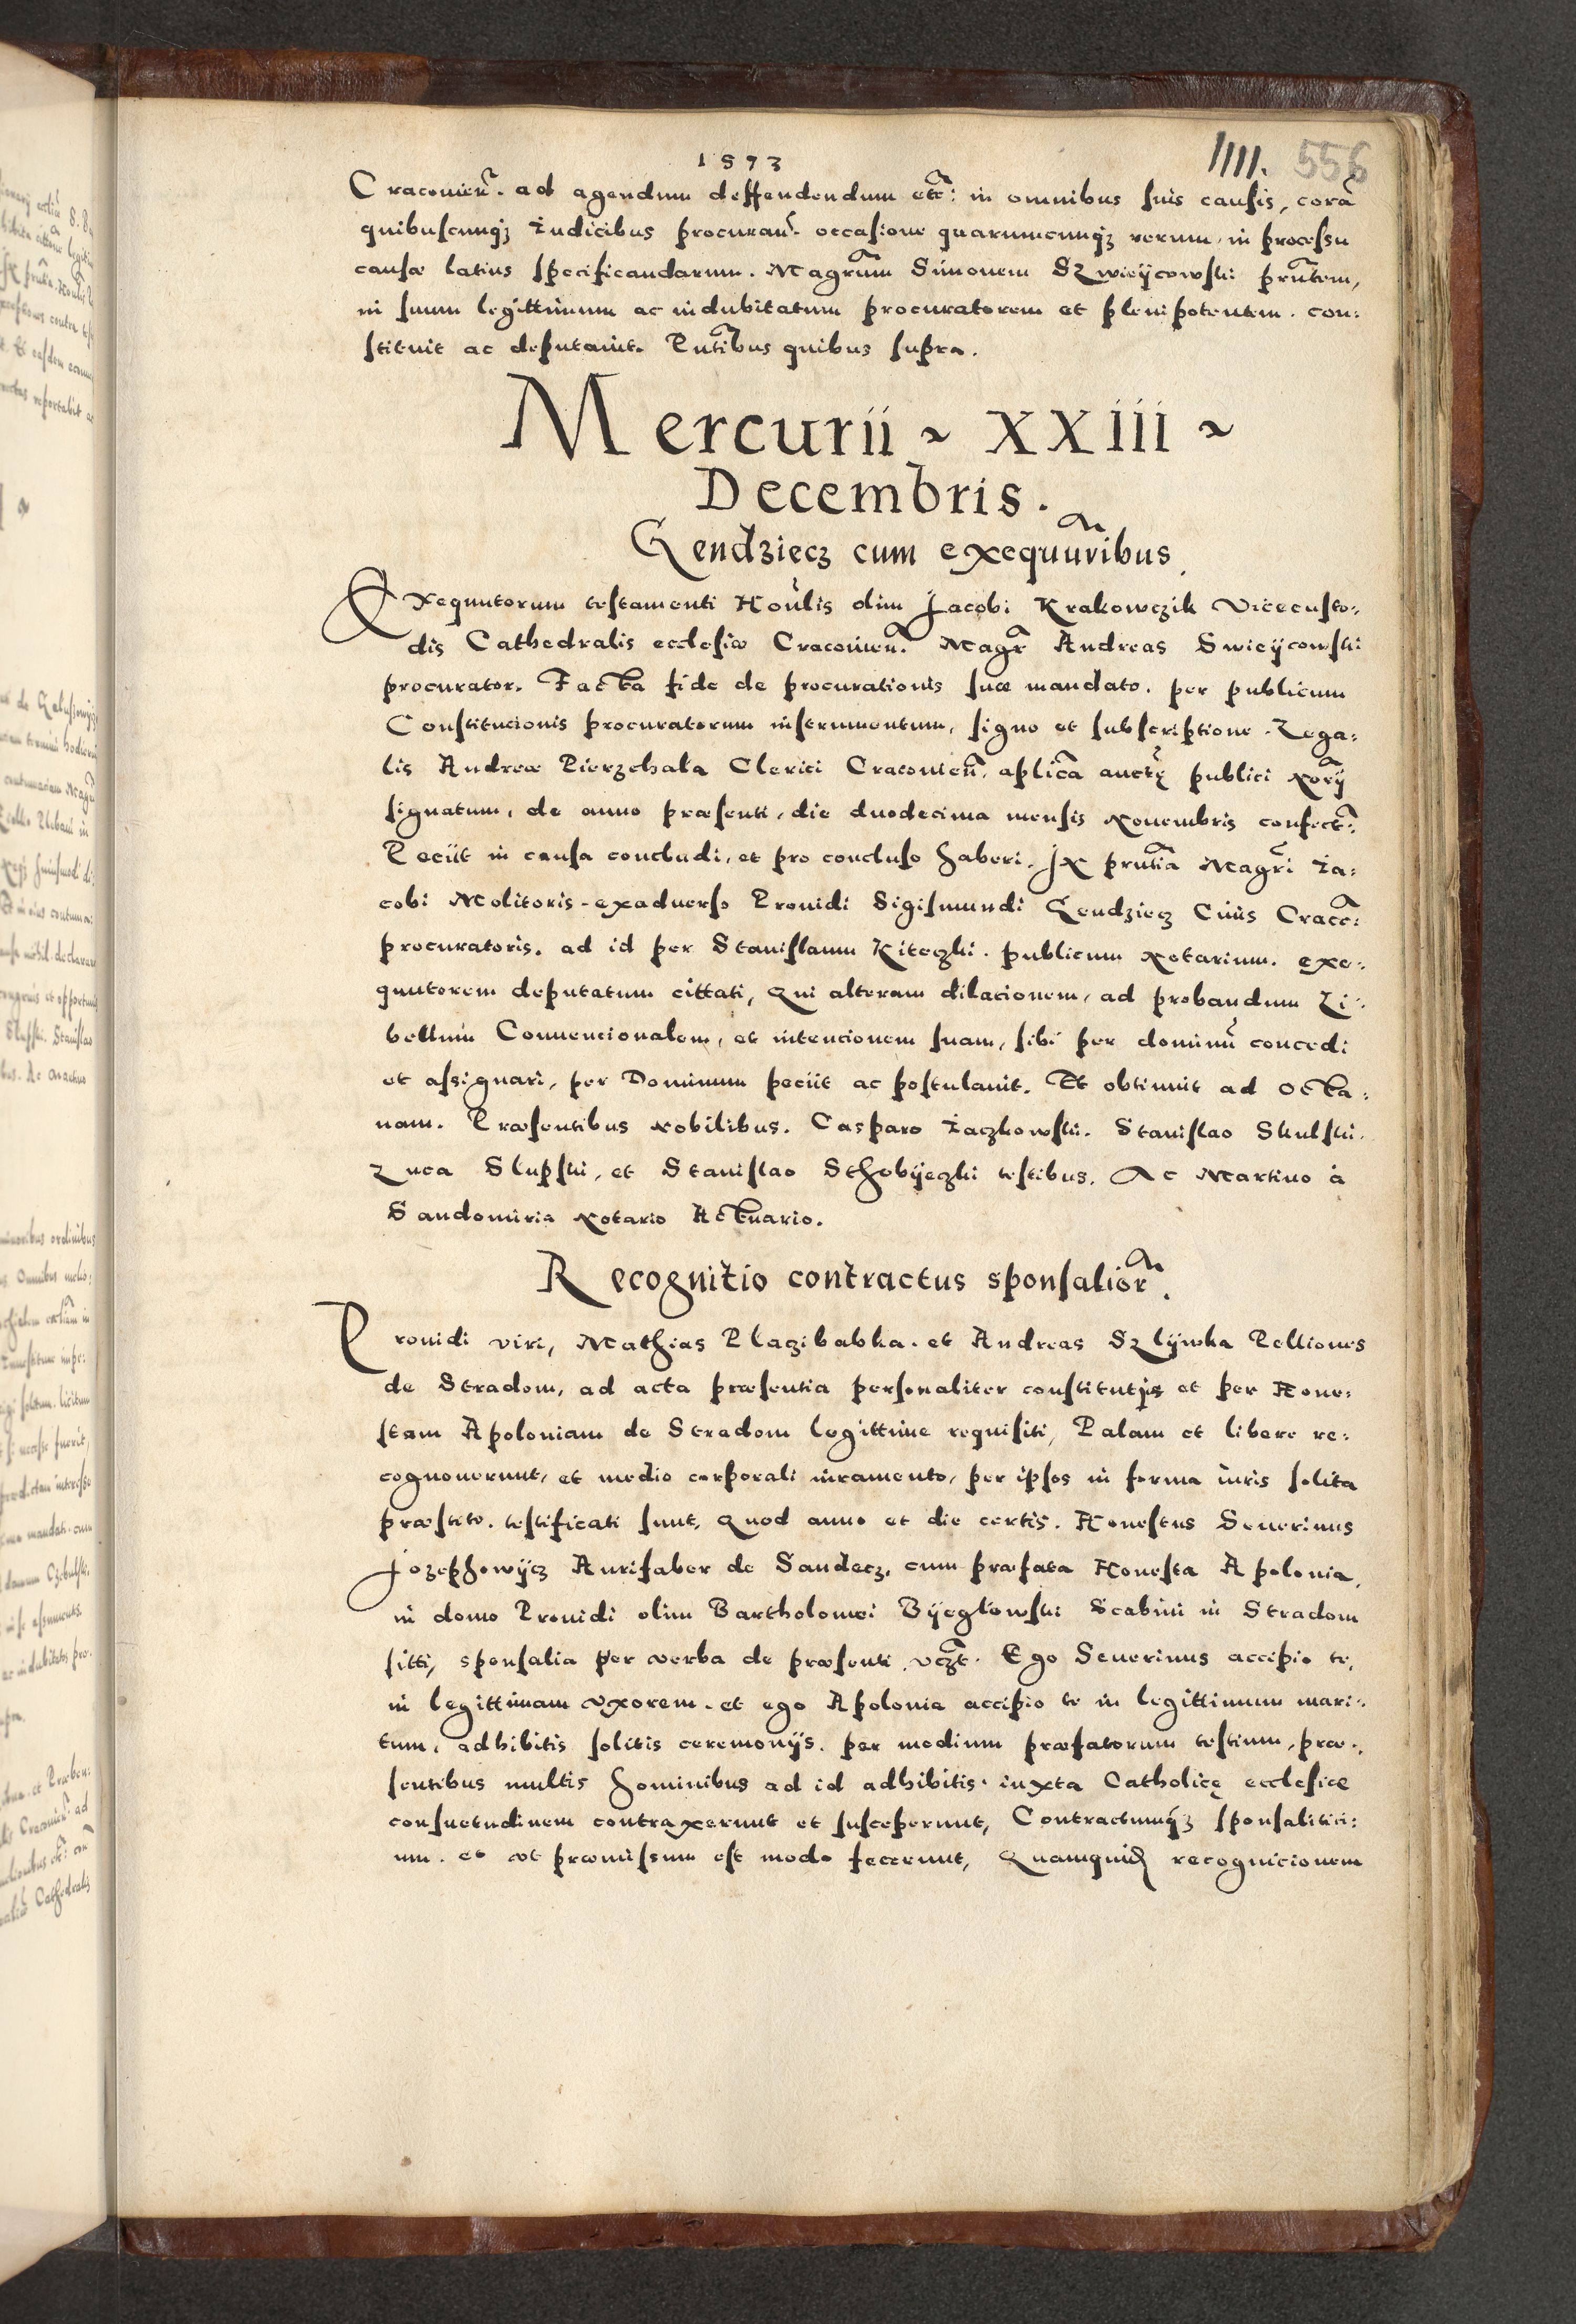 1573
IIII. 556
Craconien̄. ad agendum deffendendum etc̄: in omnibus suis causis, corā
quibuscunq₃ Iudicibus procuran̄. occasione quarumcunq₃ rerum, in processu
causæ latius specificandarum. Magrūm Simonem Szwieijcowski prn̄tem,
in suum legittimum ac indubitatum procuratorem et plenipotentem. con:
stituit ac deputauit. Pntībus quibus supra.
Mercurii ~ XXIII ~
Decembris.
Gendziecz cum exequūribus.
Exequutorum testamenti Honl̄is olim Jacobi Krakowczik Vicecusto:
dis Cathedralis ecclesiæ Craconien̄. Magr̄ Andreas Swieijcowski
procurator. Facta fide de procurationis suæ mandato. per publicum
Constitucionis procuratorum instrumentum, signo et subscriptione. Lega:
lis Andreæ Pierzchała Clerici Craconien̄. aplīca auctē publici Norīj
signatum, de anno præsenti, die duodecima mensis Nouembris confect̄:
Peciit in causa concludi, et pro concluso haberi. In prntīa Magrī Ia:
cobi Molitoris exaduerso Prouidi Sigismundi Gendziecz Ciuis Cracc̄:
procuratoris. ad id per Stanislaum Kiteczki. publicum Notarium. exe:
quutorem deputatum cittati, Qui alteram dilacionem, ad probandum Li:
bellum Conuencionalem, et intencionem suam, sibi per dominū concedi
et assignari, per Dominum peciit ac postulauit. Et obtinuit ad octa:
uam. Præsentibus Nobilibus. Casparo Iaczkowski. Stanislao Skulski.
Luca Slupski, et Stanislao Sthobijeczki testibus. Ac Martino à
Sandomiria Notario Actuario.
Recognitio contractus sponsalior̄.
Prouidi viri, Mathias Placzibabka. et Andreas Szlijwka Pelliones
de Stradom, ad acta præsentia personaliter constitutis et per Hone:
stam Apoloniam de Stradom legittime requisiti, Palam et libere re:
cognouerunt, et medio corporali iuramento, per ipsos in forma iuris solita
præstito. testificati sunt, Quod anno et die certis. Honestus Seuerinus
Jozephowijcz Aurifaber de Sandecz, cum præfata Honesta Apolonia,
in domo Prouidi olim Bartholomei Bijeglowski Scabini in Stradom
sitti, sponsalia per verba de præsenti vcz̄t. Ego Seuerinus accipio te,
in legittimam vxorem. et ego Apolonia accipio te in legittimum mari:
tum, adhibitis solitis ceremonijs. per medium præfatorum testium, præ:
sentibus multis hominibus ad id adhibitis. iuxta Catholicę ecclesiæ
consuetudinem contraxerunt et susceperunt, Contractumq₃ sponsalitici:
um. eo vt præmissum est modo fecerunt, Quamquid̄ recognicionem